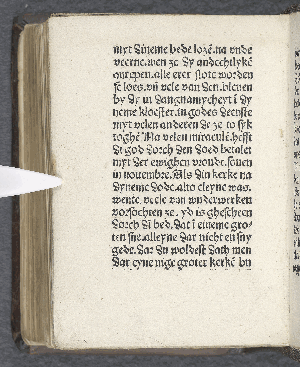 myt dineme bede lozē. na vnde
veerne. wen ze dy andechtlykē
anrepen. alle erer slote worden
se loes. vn vele van den. bleuen
by dy in langhamycheyt i dy
neme kloester. in godes deenste
myt velen anderen de ze to syk
toghē Na velen miraculē. hefft
di god dorch den doed betalet
myt der ewighen vroude. seuen
in nouembre. Als din kerke na
dyneme dode. alto cleyne was.
wente. veele van wnderwerken
vorsochten ze. yd is ghescheen
dorch di bed. dat i eineme gro
ten sne. alleyne dar nicht en sny
gede. dar du woldest dath men
dar eyne nige groter kerkē bu